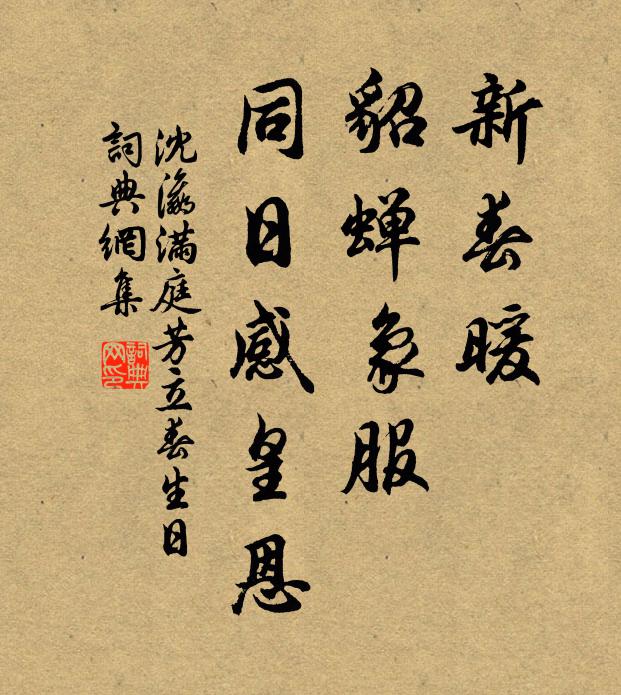 新春暖
貂蟬象服
同日感皇恩
沈瀛滿庭芳立春生日
詞典網集
詞典网印